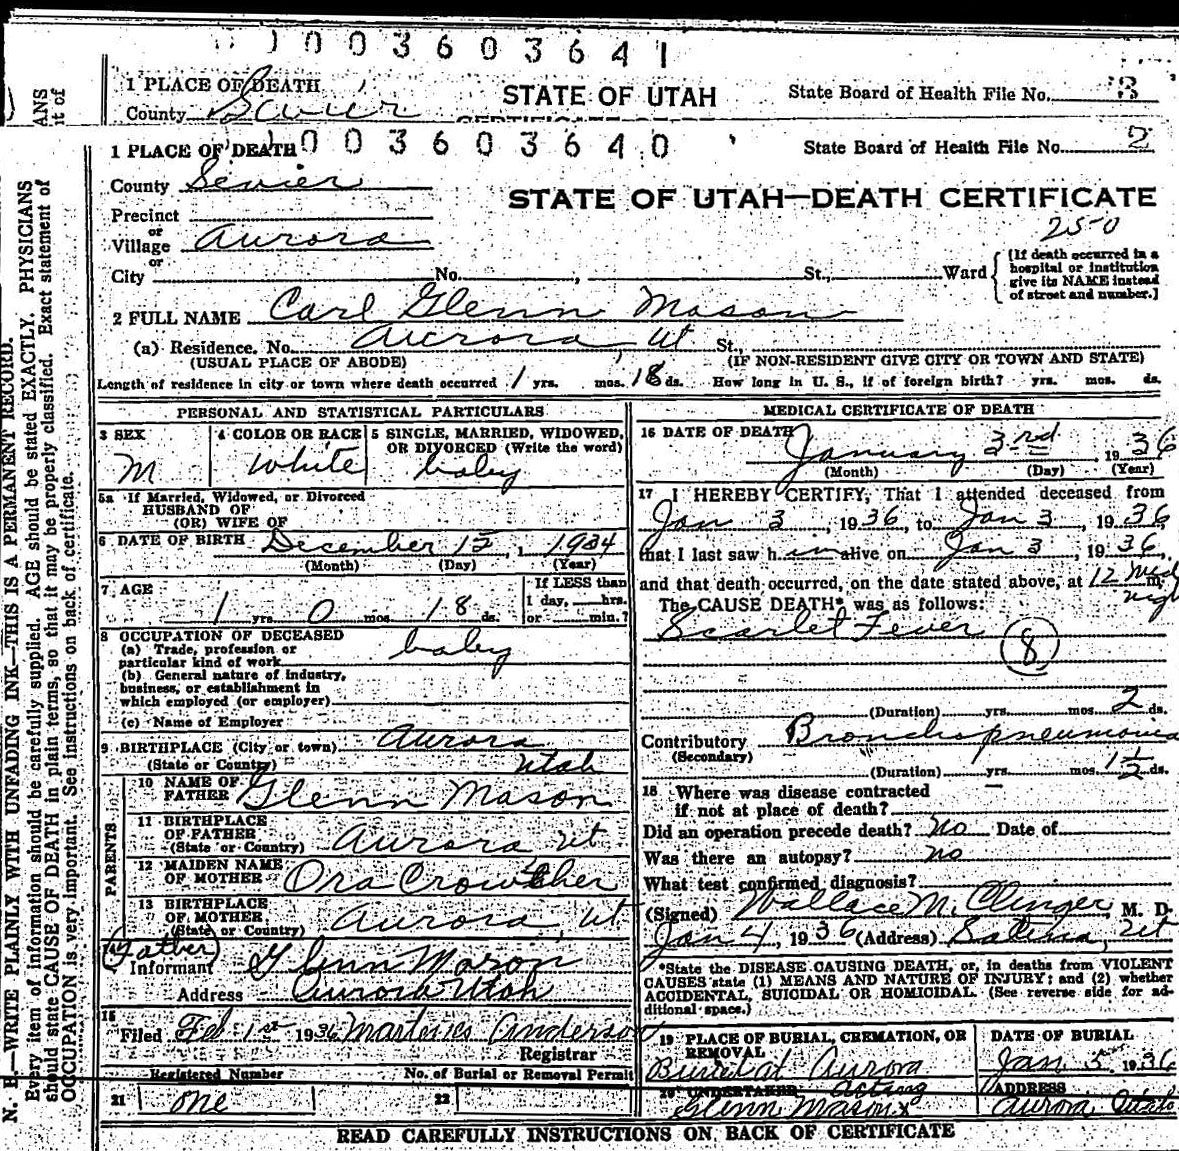 1003603641
1 PLACE OF DEATH
STATE OF UTAH
State Board of Health File No. 3
County Sevier
1003603640
1 PLACE OF DEATH
State Board of Health File No. 2
County Sevier
STATE OF UTAH—DEATH CERTIFICATE
Precinct
250
or
Village Aurora
or
City No. , St., Ward
[If death occurred in a
hospital or institution
give its NAME instead
of street and number.]
2 FULL NAME Carl Glenn Mason
(a) Residence. No. Aurora, Ut St.,
(USUAL PLACE OF ABODE) (IF NON-RESIDENT GIVE CITY OR TOWN AND STATE)
Length of residence in city or town where death occurred 1 yrs. mos. 18 ds. How long in U. S., if of foreign birth? yrs. mos. ds.
PERSONAL AND STATISTICAL PARTICULARS
3 SEX 4 COLOR OR RACE 5 SINGLE, MARRIED, WIDOWED,
OR DIVORCED (Write the word)
M White baby
5a If Married, Widowed, or Divorced
HUSBAND OF
(OR) WIFE OF
6 DATE OF BIRTH December 15, 1934
(Month) (Day) (Year)
7 AGE If LESS than
1 day, hrs.
1 yrs. 0 mos. 18 ds. or min.?
8 OCCUPATION OF DECEASED
(a) Trade, profession or
particular kind of work baby
(b) General nature of industry,
business, or establishment in
which employed (or employer)
(c) Name of Employer
9 BIRTHPLACE (City or town) Aurora
(State or Country) Utah
PARENTS
10 NAME OF
FATHER Glenn Mason
11 BIRTHPLACE
OF FATHER
(State or Country) Aurora Ut
12 MAIDEN NAME
OF MOTHER Ora Crowther
13 BIRTHPLACE
OF MOTHER
(State or Country) Aurora, Ut
(Father)
Informant Glenn Mason
Address Aurora Utah
15
Filed Feb 1st 1936 Anderson
Registrar
Registered Number No. of Burial or Removal Permit
21 one 22
MEDICAL CERTIFICATE OF DEATH
16 DATE OF DEATH
January 3rd 1936
(Month) (Day) (Year)
17 I HEREBY CERTIFY, That I attended deceased from
Jan 3, 1936, to Jan 3, 1936
that I last saw him alive on Jan 3, 1936,
and that death occurred, on the date stated above, at 12 Mid m.
night
The CAUSE DEATH* was as follows:
Scarlet Fever
8
(Duration) yrs. mos. 2 ds.
Contributory Bronchopneumonia
(Secondary)
(Duration) yrs. mos. 1½ ds.
18 Where was disease contracted
if not at place of death?
Did an operation precede death? no Date of
Was there an autopsy? no
What test confirmed diagnosis?
(Signed) Wallace M. Clinger M. D.
Jan 4, 1936 (Address) Salina, Ut
*State the DISEASE CAUSING DEATH, or, in deaths from VIOLENT
CAUSES state (1) MEANS AND NATURE OF INJURY; and (2) whether
ACCIDENTAL, SUICIDAL OR HOMICIDAL. (See reverse side for ad-
ditional space.)
19 PLACE OF BURIAL, CREMATION, OR
REMOVAL
DATE OF BURIAL
Buried at Aurora
Jan 5 1936
20 UNDERTAKER acting
ADDRESS
Glenn Mason x
Aurora Utah
READ CAREFULLY INSTRUCTIONS ON BACK OF CERTIFICATE
N. B.—WRITE PLAINLY WITH UNFADING INK—THIS IS A PERMANENT RECORD.
Every item of information should be carefully supplied. AGE should be stated EXACTLY. PHYSICIANS
should state CAUSE OF DEATH in plain terms, so that it may be properly classified. Exact statement of
OCCUPATION is very important. See instructions on back of certificate.